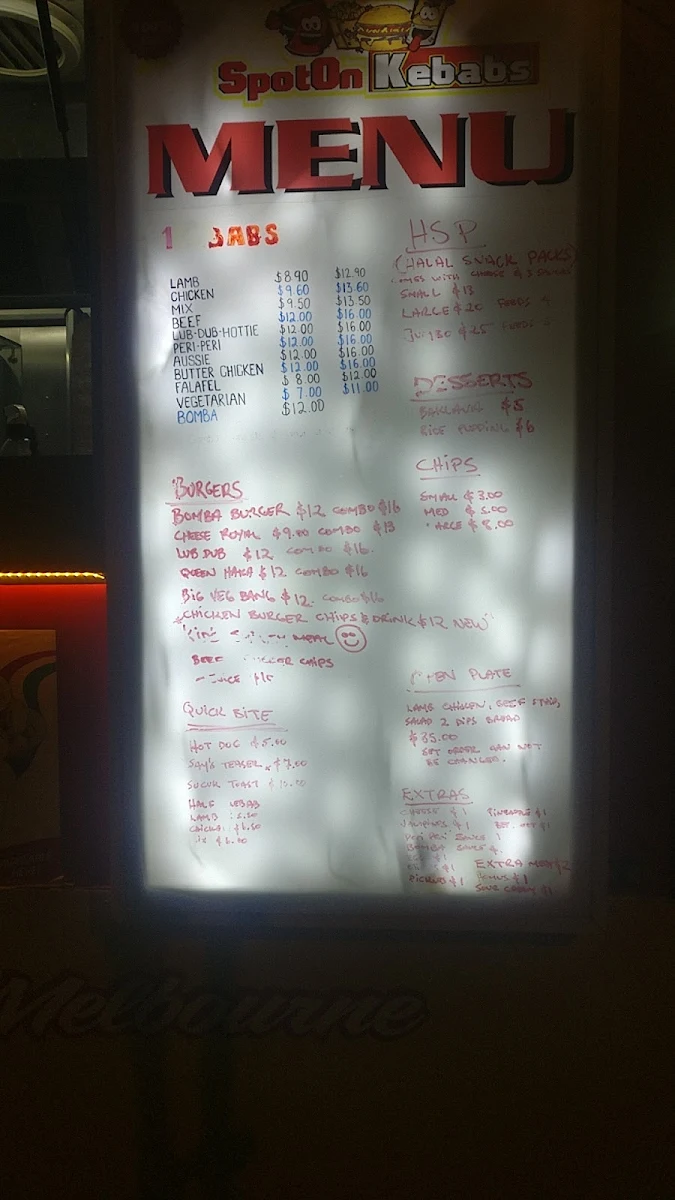 SpotOn Kebabs
MENU
LAMB $8.90 $12.90
CHICKEN $9.60 $13.60
MIX $9.50 $13.50
BEEF $12.00 $16.00
LUB-DUB-HOTTIE $12.00 $16.00
PERI-PERI $12.00 $16.00
AUSSIE $12.00 $16.00
BUTTER CHICKEN $12.00 $16.00
FALAFEL $8.00 $12.00
VEGETARIAN $7.00 $11.00
BOMBA $12.00
BURGERS
BOMBA BURGER $12 COMBO $16
CHEESE ROYAL $9.00 COMBO $13
LUB DUB $12 COMBO $16
QUEEN HAKA $12 COMBO $16
BIG VEG BANG $12 COMBO $16
CHICKEN BURGER CHIPS & DRINK $12 NEW
MEAL
BEEF CHIPS
QUICK BITE
HOT DOG $5.00
TEASER
SUCUK TOAST
HALF KEBAB
LAMB
HSP
(HALAL SNACK PACKS)
COMES WITH CHEESE & 3
SMALL $13
LARGE $20 FEEDS
JUMBO $25 FEEDS
DESSERTS
BAKLAVA $5
RICE PUDDING $6
CHIPS
SMALL $3.00
MED $5.00
$8.00
PLATE
LAMB CHICKEN, BEEF
SALAD 2 DIPS BREAD
$35.00
SET ORDER CAN NOT
BE CHANGED.
EXTRAS
CHEESE $1 PINEAPPLE $1
JALAPENOS $1
PERI PERI SAUCE
BOMBA SAUCE
EXTRA MEAT $2
PICKLES $1 HUMUS $1
SOUR CREAM $1
Melbourne